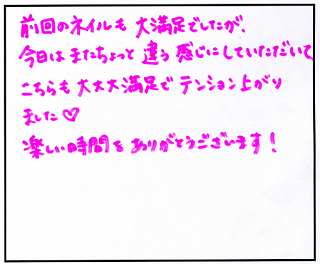 前回のネイルも大満足でしたが、
今日はまたちょっと違う感じにしていただいて
こちらも大大大満足でテンション上がり
ました♡
楽しい時間をありがとうございます！